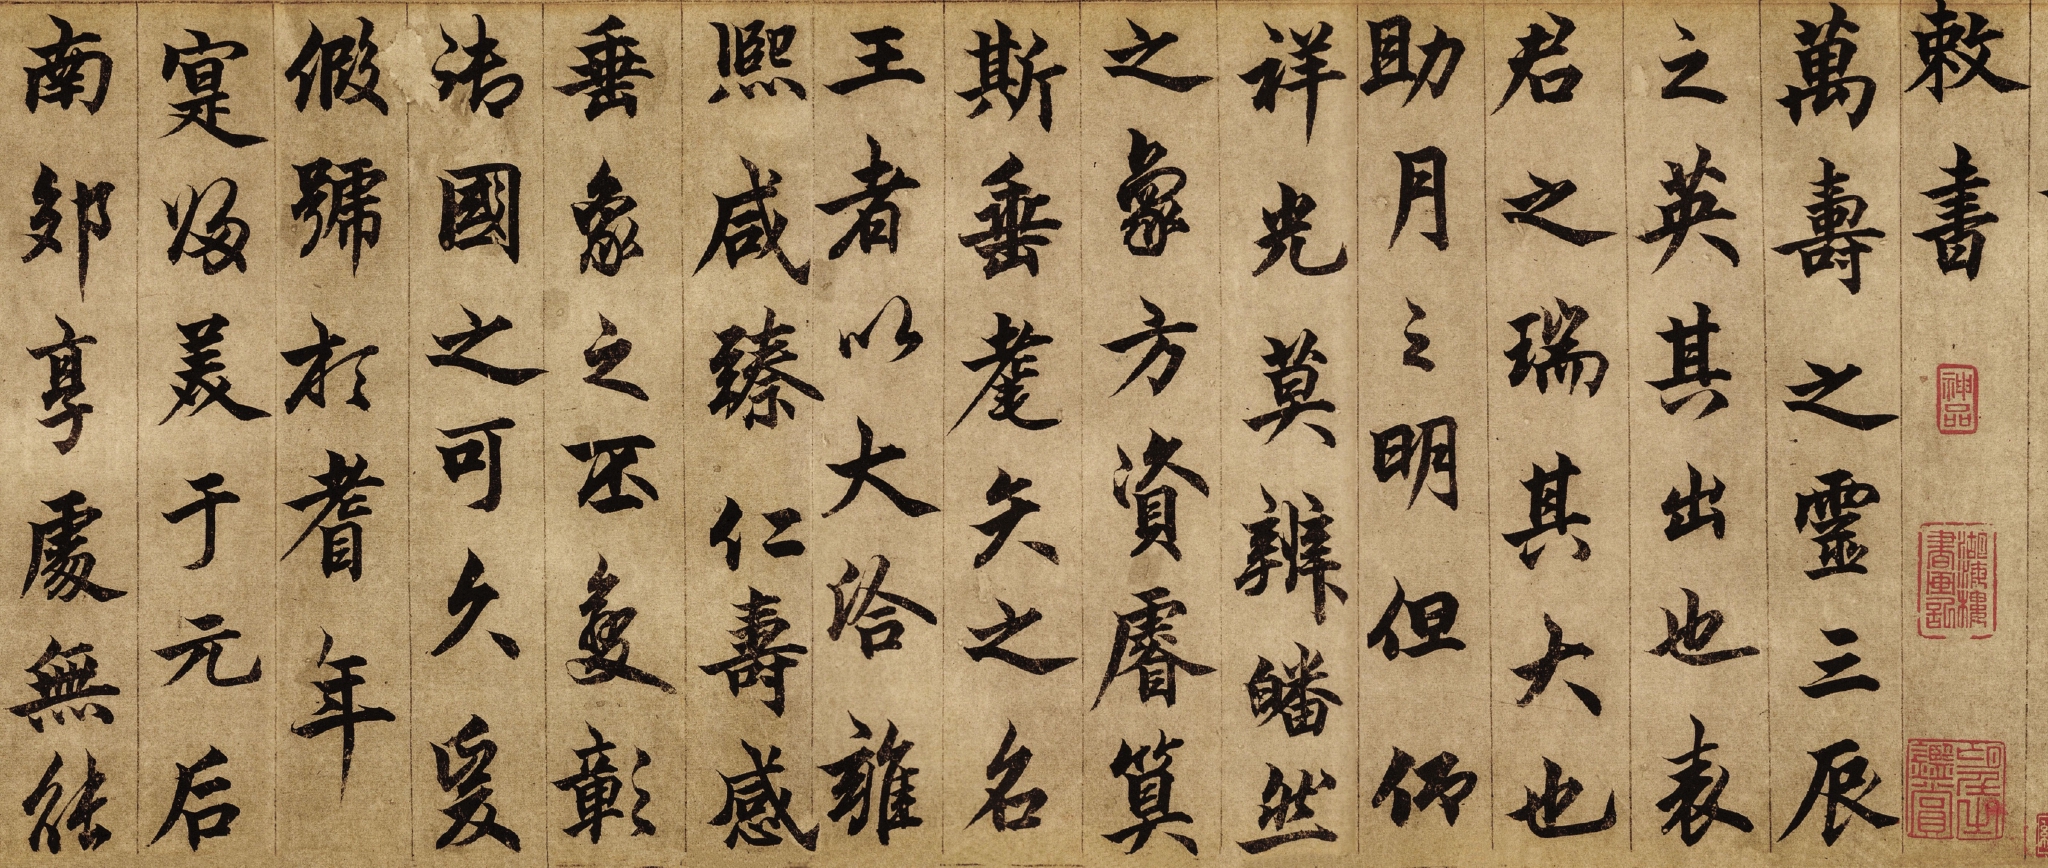 敕書
萬壽之靈三辰
之英其出也表
君之瑞其大也
助月之明但仰
祥光莫辨皤然
之象方資睿筭
斯垂耄矣之名
王者以大洽雍
熙咸臻仁壽感
垂象之丕變彰
御國之可久爰
假號於耆年
寔歸美于元后
南郊享處無能
神品
湖海樓書畫記